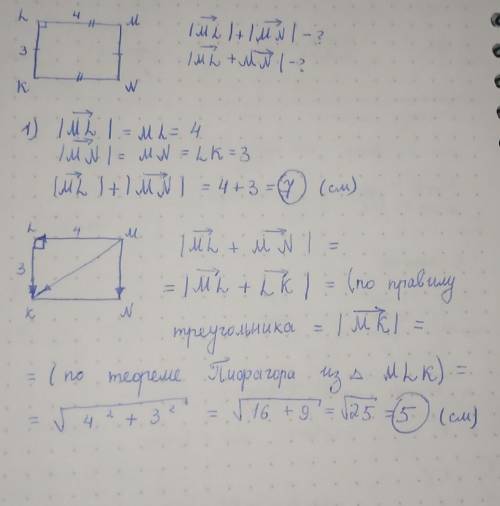 L 4 M
3
K N
|ML| + |MN| - ?
|ML + MN| - ?
1) |ML| = ML = 4
|MN| = MN = LK = 3
|ML| + |MN| = 4 + 3 = 7 (см)
L 4 M
3
K N
|ML + MN| =
= |ML + LK| = (по правилу
треугольника = |MK| =
= (по теореме Пифагора из △ MLK) =
= √4² + 3² = √16 + 9 = √25 = 5 (см)